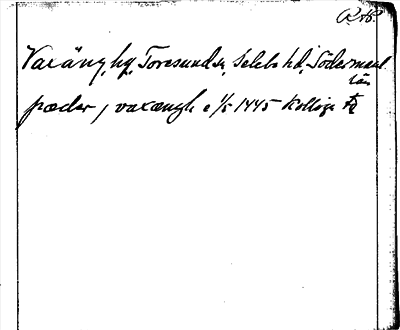 Varäng, hg, Toresunds sn, Selebo hd, Södermanl
län
pædar j varængh e 1/5 1445 Kollega